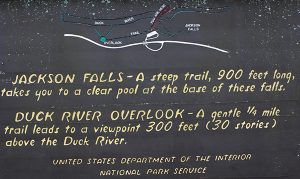 DUCK RIVER
JACKSON
FALLS
TRAIL
OVERLOOK
JACKSON FALLS-A steep trail, 900 feet long,
takes you to a clear pool at the base of these falls.
DUCK RIVER OVERLOOK-A gentle 1/4 mile
trail leads to a viewpoint 300 feet (30 stories)
above the Duck River.
UNITED STATES DEPARTMENT OF THE INTERIOR
NATIONAL PARK SERVICE